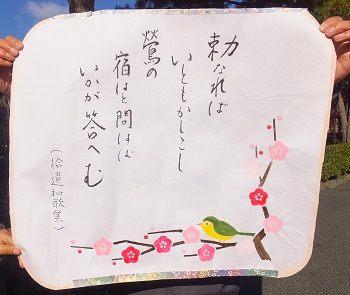 勅なれば
いともかしこし
鶯の
宿はと問はば
いかが答へむ
(拾遺和歌集)